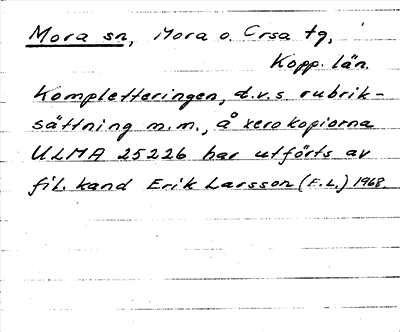 Mora sn, Mora o. Orsa tg,
Kopp. län.
Kompletteringen, d.v.s. rubrik-
sättning m.m., å xerokopiorna
ULMA 25226 har utförts av
fil. kand Erik Larsson (E.L.) 1968.